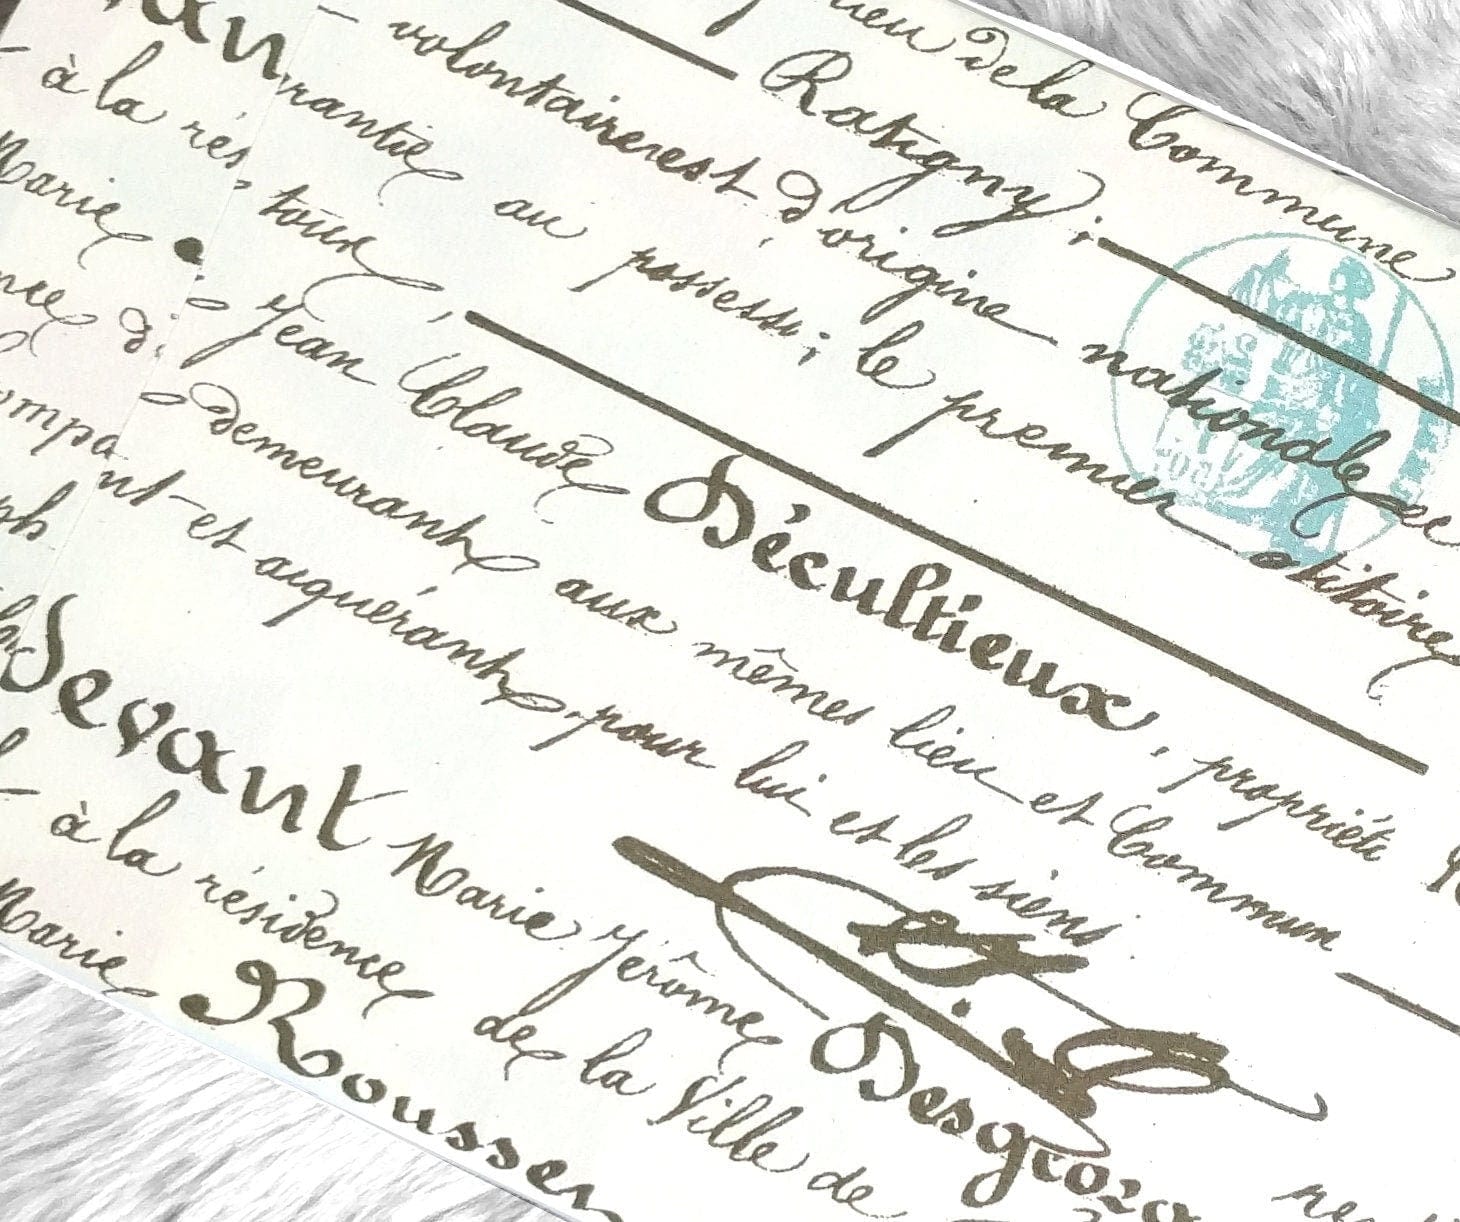 lieu de la Commune
Ratigny;
volontairement d'origine nationale et
rantie au possessi; le premier
à la rés toux,
Marie Jean Claude Décultieux, propriéta
demeurant aux mêmes lieu et Commun
ompa nt et aiquérant, pour lui et les siens
Devant Marie Jérôme Desgroza
à la résidence de la Ville de
Marie Rousset